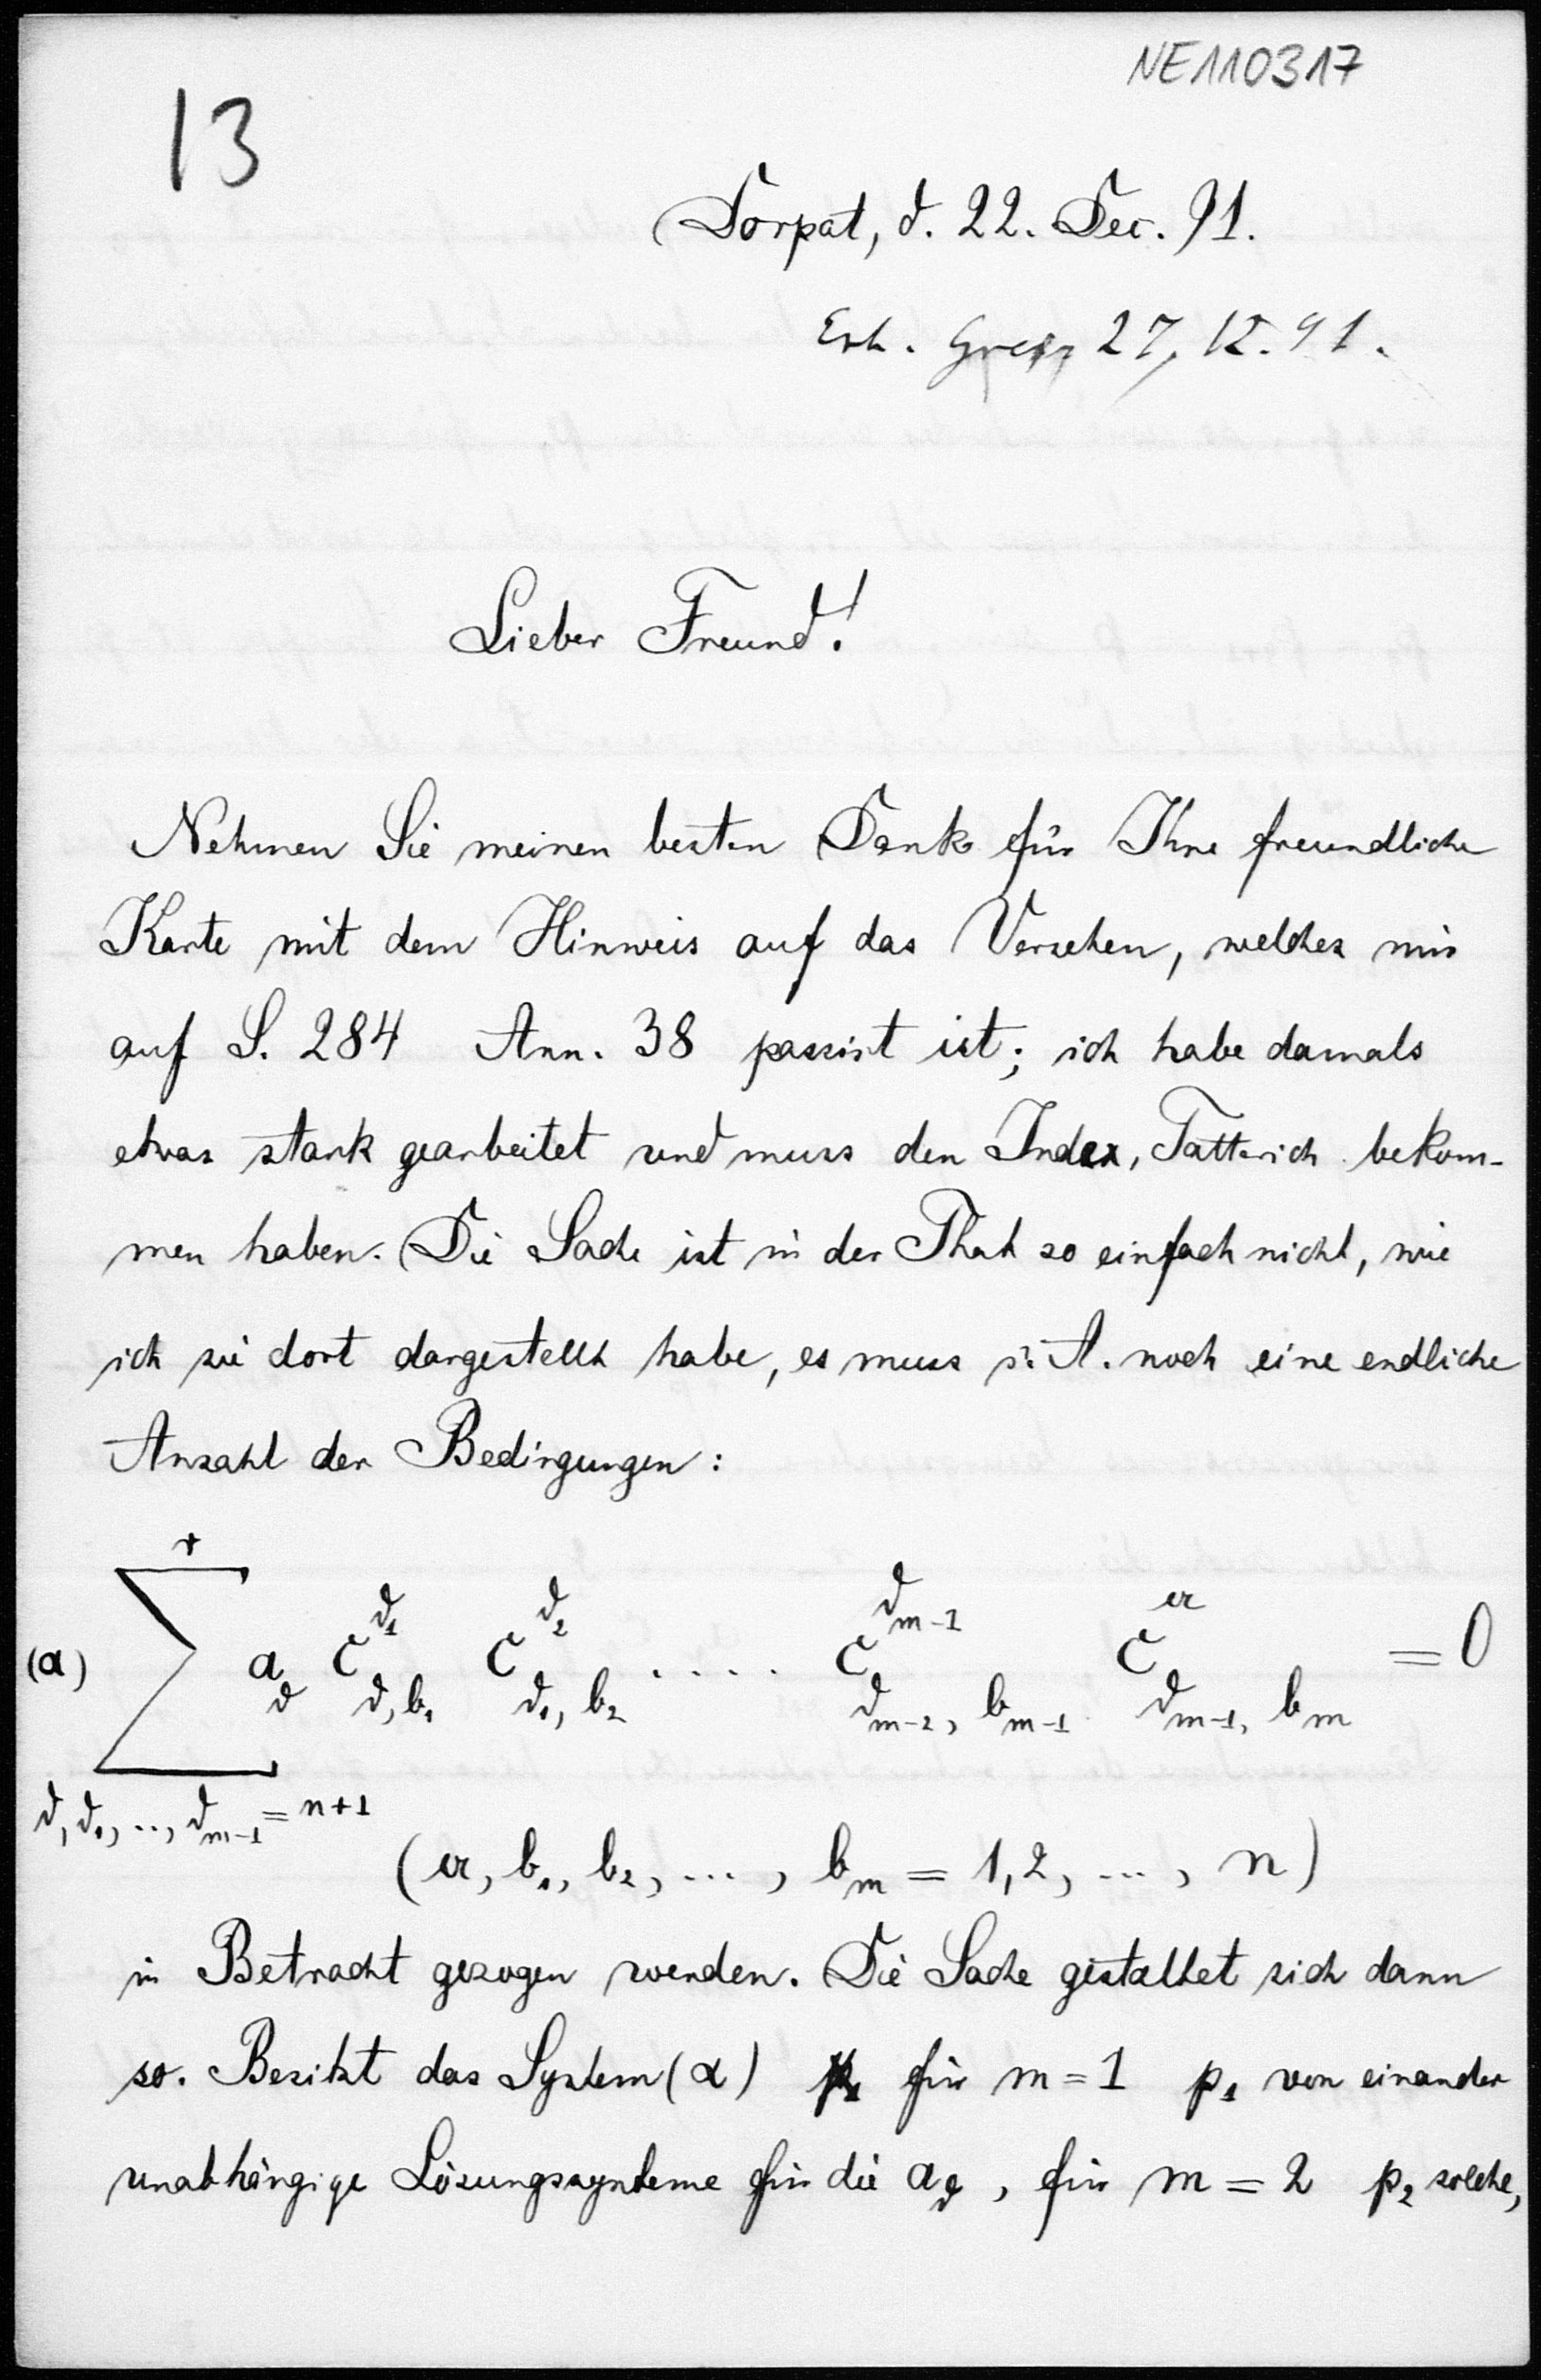 NE110317
13
Dorpat, d. 22. Dec. 91.
Erh. 27, 12. 91.
Lieber Freund!
Nehmen Sie meinen besten Dank für Ihre freundliche
Karte mit dem Hinweis auf das Versehen, welches mir
auf S. 284 Ann. 38 passirt ist; ich habe damals
etwas stark gearbeitet und muss den Index, Tatterich bekom-
men haben. Die Sache ist in der That so einfach nicht, wie
ich sie dort dargestellt habe, es muss i. A. noch eine endliche
Anzahl der Bedingungen:
(α) Σ^r_{d, d₁, .., d_{m-1} = n+1} a_d c^{d₁}_{d, b₁} c^{d₂}_{d₁, b₂} .... c^{d_{m-1}}_{d_{m-2}, b_{m-1}} c^{a}_{d_{m-1}, b_m} = 0
(a, b₁, b₂, ..., b_m = 1, 2, ..., n)
in Betracht gezogen werden. Die Sache gestaltet sich dann
so. Besitzt das System (α) für m = 1 p₁ von einander
unabhängige Lösungssysteme für die a_d, für m = 2 p₂ solche,